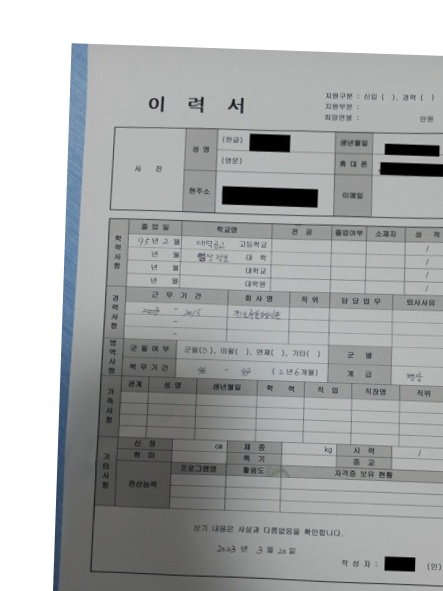 이 력 서
지원구분 : 신입 ( ), 경력 ( )
지원부분 :
희망연봉 : 만원
사 진
성 명 (한글) 생년월일
(영문) 휴 대 폰
현주소 이메일
학력사항
졸 업 일 학교명 전 공 졸업여부 소재지 성 적
95년 2 월 고등학교 /
년 월 대 학 /
년 월 대학교 /
년 월 대학원 /
경력사항
근 무 기 간 회 사 명 직위 담 당 업 무 퇴사사유
2008 - 2015
-
-
병역사항
군필여부 군필(○), 미필( ), 면제( ), 기타( ) 군 별
복무기간 96 - 98 ( 2년 6개월) 계 급 병장
가족사항
관계 성 명 생년월일 학 력 직 업 직장명 직위
기타사항
신 장 cm 체 중 kg 시 력 /
취 미 특 기 종 교
전산능력 프로그램명 활용도 자격증 보유 현황
상기 내용은 사실과 다름없음을 확인합니다.
2023 년 3 월 20 일
작 성 자 : (인)